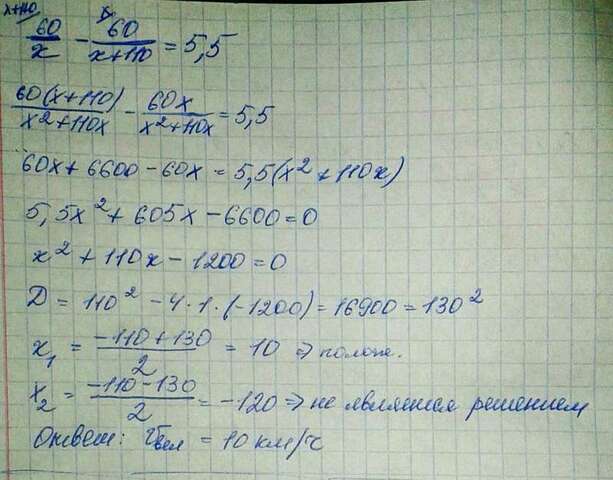 x+110 x
60/x - 60/(x+110) = 5,5
60(x+110)/(x²+110x) - 60x/(x²+110x) = 5,5
60x + 6600 - 60x = 5,5(x² + 110x)
5,5x² + 605x - 6600 = 0
x² + 110x - 1200 = 0
D = 110² - 4·1·(-1200) = 16900 = 130²
x₁ = (-110+130)/2 = 10 ⇒ полож.
x₂ = (-110-130)/2 = -120 ⇒ не является решением
Ответ: Vвел = 10 км/ч